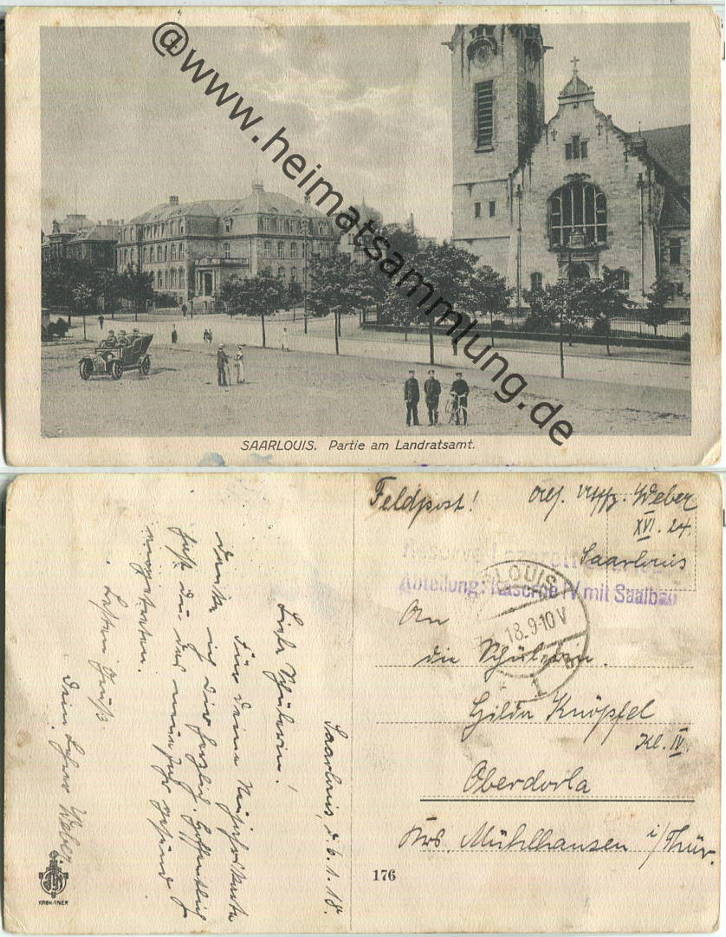 @www.heimatsammlung.de
SAARLOUIS. Partie am Landratsamt.
Feldpost!
Weber
XVI. 24.
Saarlouis
Reserve Lazarett
Abteilung: Kaserne IV mit Saalbau
LOUIS
18.9-10V
An
die Schülerin
Hilda Knöpfel
Kl. IV.
Oberdorla
Krs. Mühlhausen i/Thür.
176
Saarlouis, d. 6.1.18.
Liebe Schülerin!
Für Deine Neujahrskarte
danke ich Dir herzlich. Hoffentlich
hast Du das neue Jahr gesund
angetreten.
Besten Gruß
Dein Lehrer Weber.